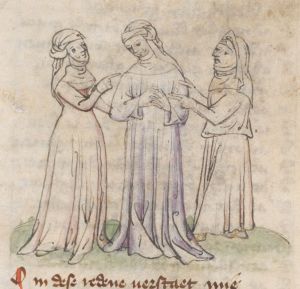 In dese redene verstaet